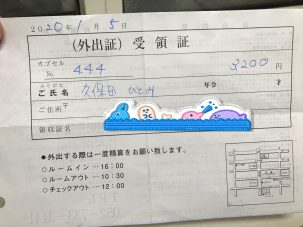 2020年1月5日
(外出証) 受領証
カプセル No. 444 3200円
ふりがな
ご氏名 久保田 ひとみ 年令 才
ご住所 〒
領収証名
●外出する際は一度精算をお願い致します。
○ルームイン…16:00
○ルームアウト…10:30
○チェックアウト…12:00